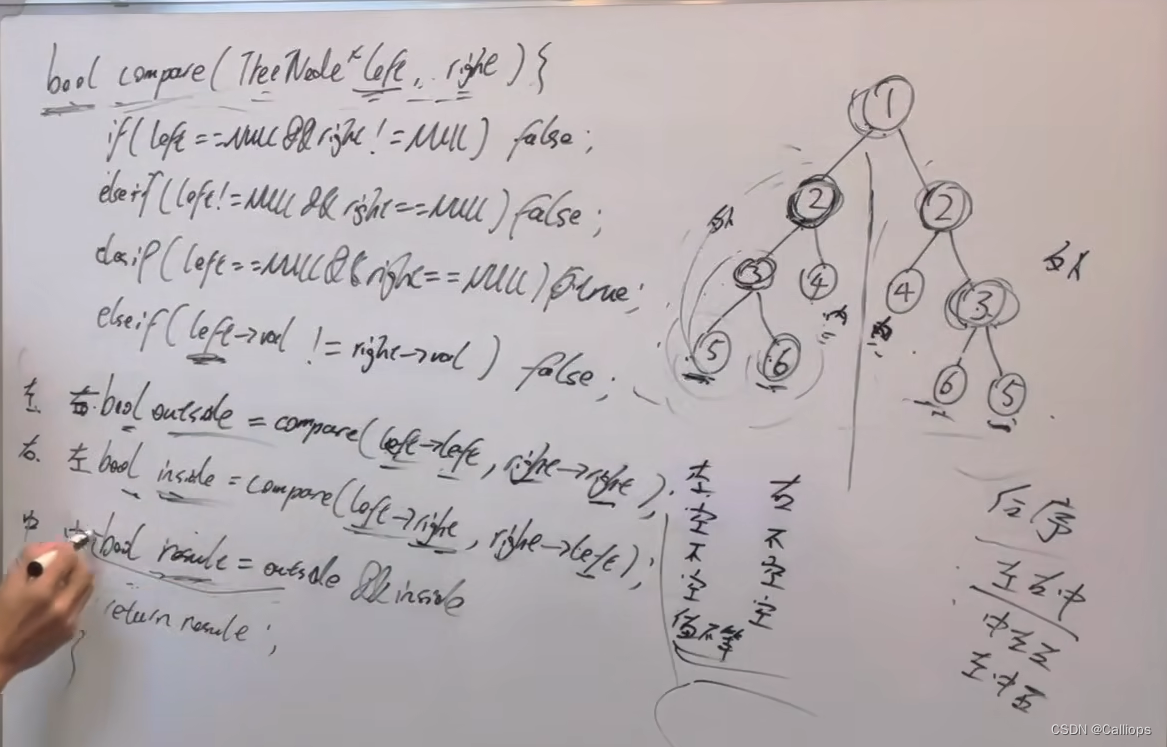 bool compare(TreeNode* left, right){
if(left==NULL && right!=NULL) false;
else if(left!=NULL && right==NULL) false;
else if(left==NULL && right==NULL) true;
else if(left->val != right->val) false;
左 右 bool outside = compare(left->left, right->right);
右 左 bool inside = compare(left->right, right->left);
中 中 bool result = outside && inside
return result;
}
1
2 2
3 4 4 3
5 6 6 5
左 右
空 不
不 空
空 空
值不等
后序
左右中
CSDN @Calliops